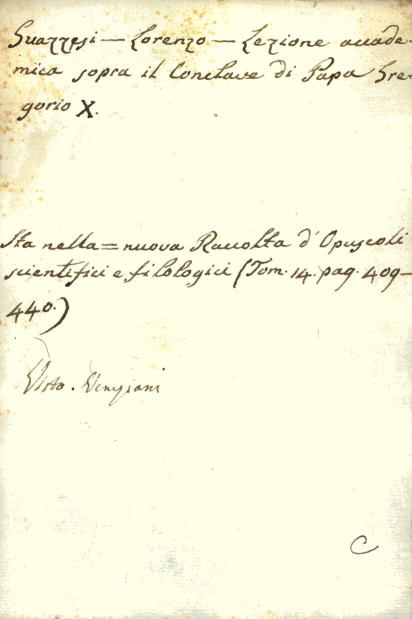 Guazzesi — Lorenzo — Lezione accade-
mica sopra il Conclave di Papa Gre-
gorio X.
Sta nella = nuova Raccolta d'Opuscoli
scientifici e filologici (Tom. 14. pag. 409-
440.)
Visto. Veneziani
C